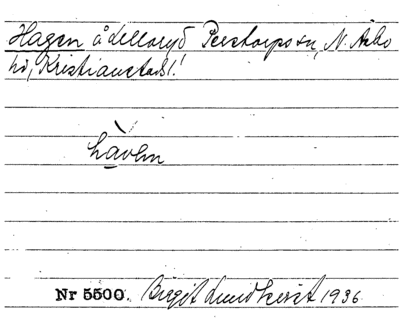 Hagen å Lillaryd Perstorps sn, N. Åsbo
hd, Kristianstads l.
hàven
Nr 5500. Birgit Lundkvist 1936